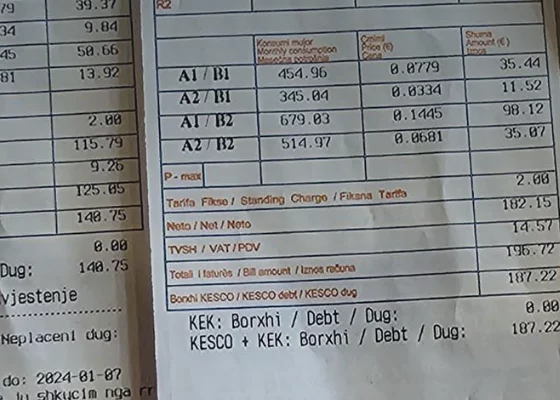 79 39.37
34 9.84
45 50.66
81 13.92
2.00
115.79
9.26
125.05
140.75
0.00
Dug: 140.75
vjestenje
Neplaceni dug:
do: 2024-01-07
R2
Konsumi mujor Cmimi Shuma
Monthly consumption Price (€) Amount (€)
Mesečna potrošnja Cena Iznos
A1 / B1 454.96 0.0779 35.44
A2 / B1 345.04 0.0334 11.52
A1 / B2 679.03 0.1445 98.12
A2 / B2 514.97 0.0681 35.07
P - max
Tarifa Fikse / Standing Charge / Fiksna Tarifa 2.00
Neto / Net / Neto 182.15
TVSH / VAT / PDV 14.57
Totali i faturës / Bill amount / Iznos računa 196.72
Borxhi KESCO / KESCO debt / KESCO dug 187.22
KEK: Borxhi / Debt / Dug: 0.00
KESCO + KEK: Borxhi / Debt / Dug: 187.22